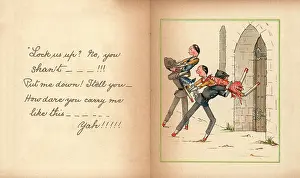 "Lock us up? No, you
shan't _ _ _ _!!!
Put me down! I tell you _
How dare you carry me
like this _ _ _ _ _
Yah!!!!!